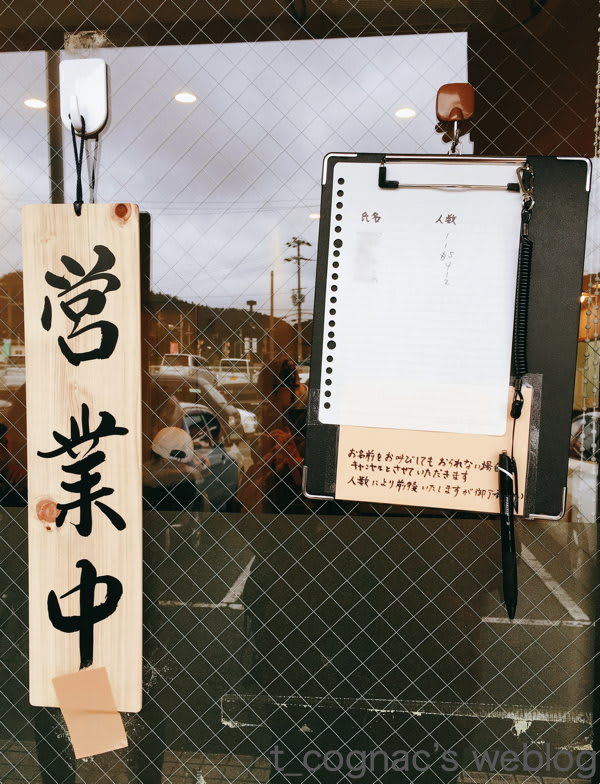 営業中
氏名 人数
お名前をお呼びしても おられない場
キャンセルとさせていただきます
人数により前後いたしますが御了
t_cognac's weblog